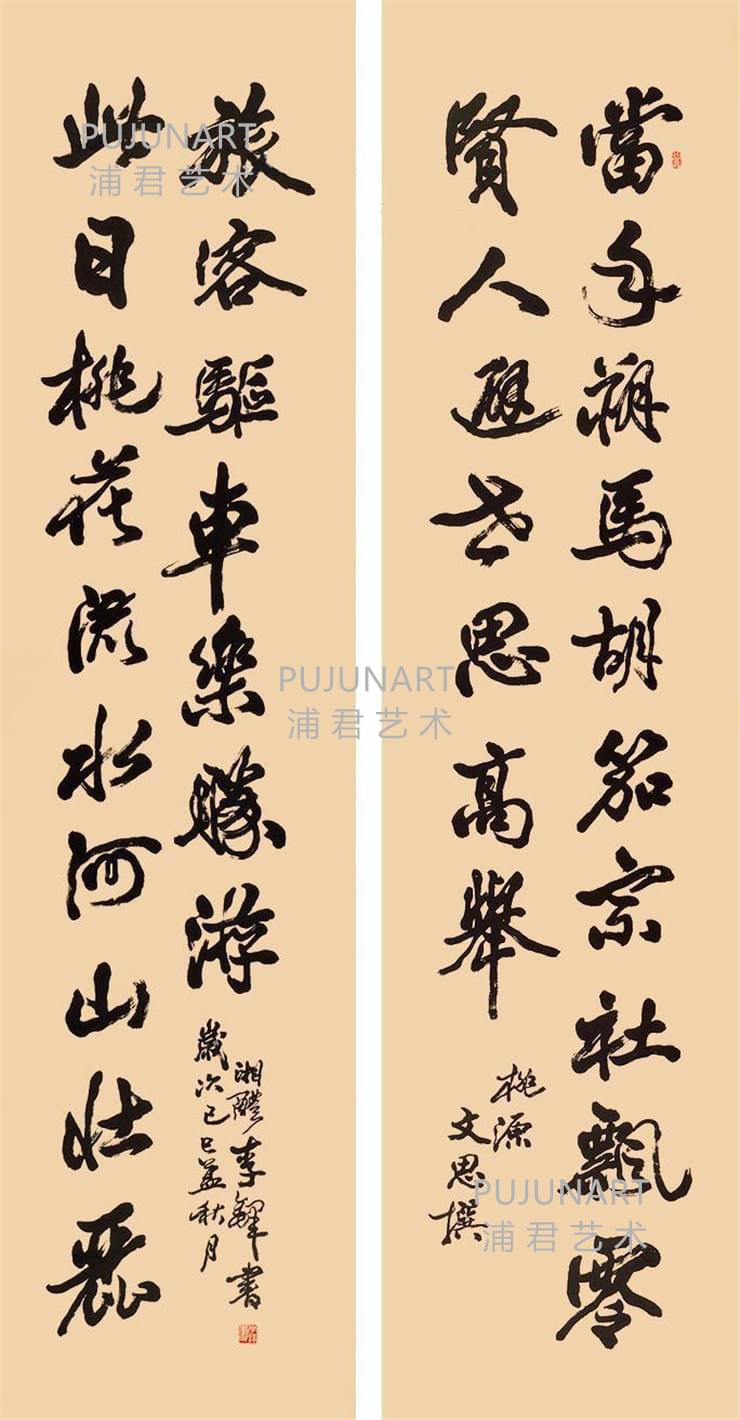 當年朔馬胡笳宗社飄零
賢人避世思高舉
桃源
文思撰
此日桃花流水河山壯麗
旅客驅車樂勝游
歲次己巳孟秋月
湘醴李鐸書
PUJUNART
浦君艺术
PUJUNART
浦君艺术
PUJUNART
浦君艺术